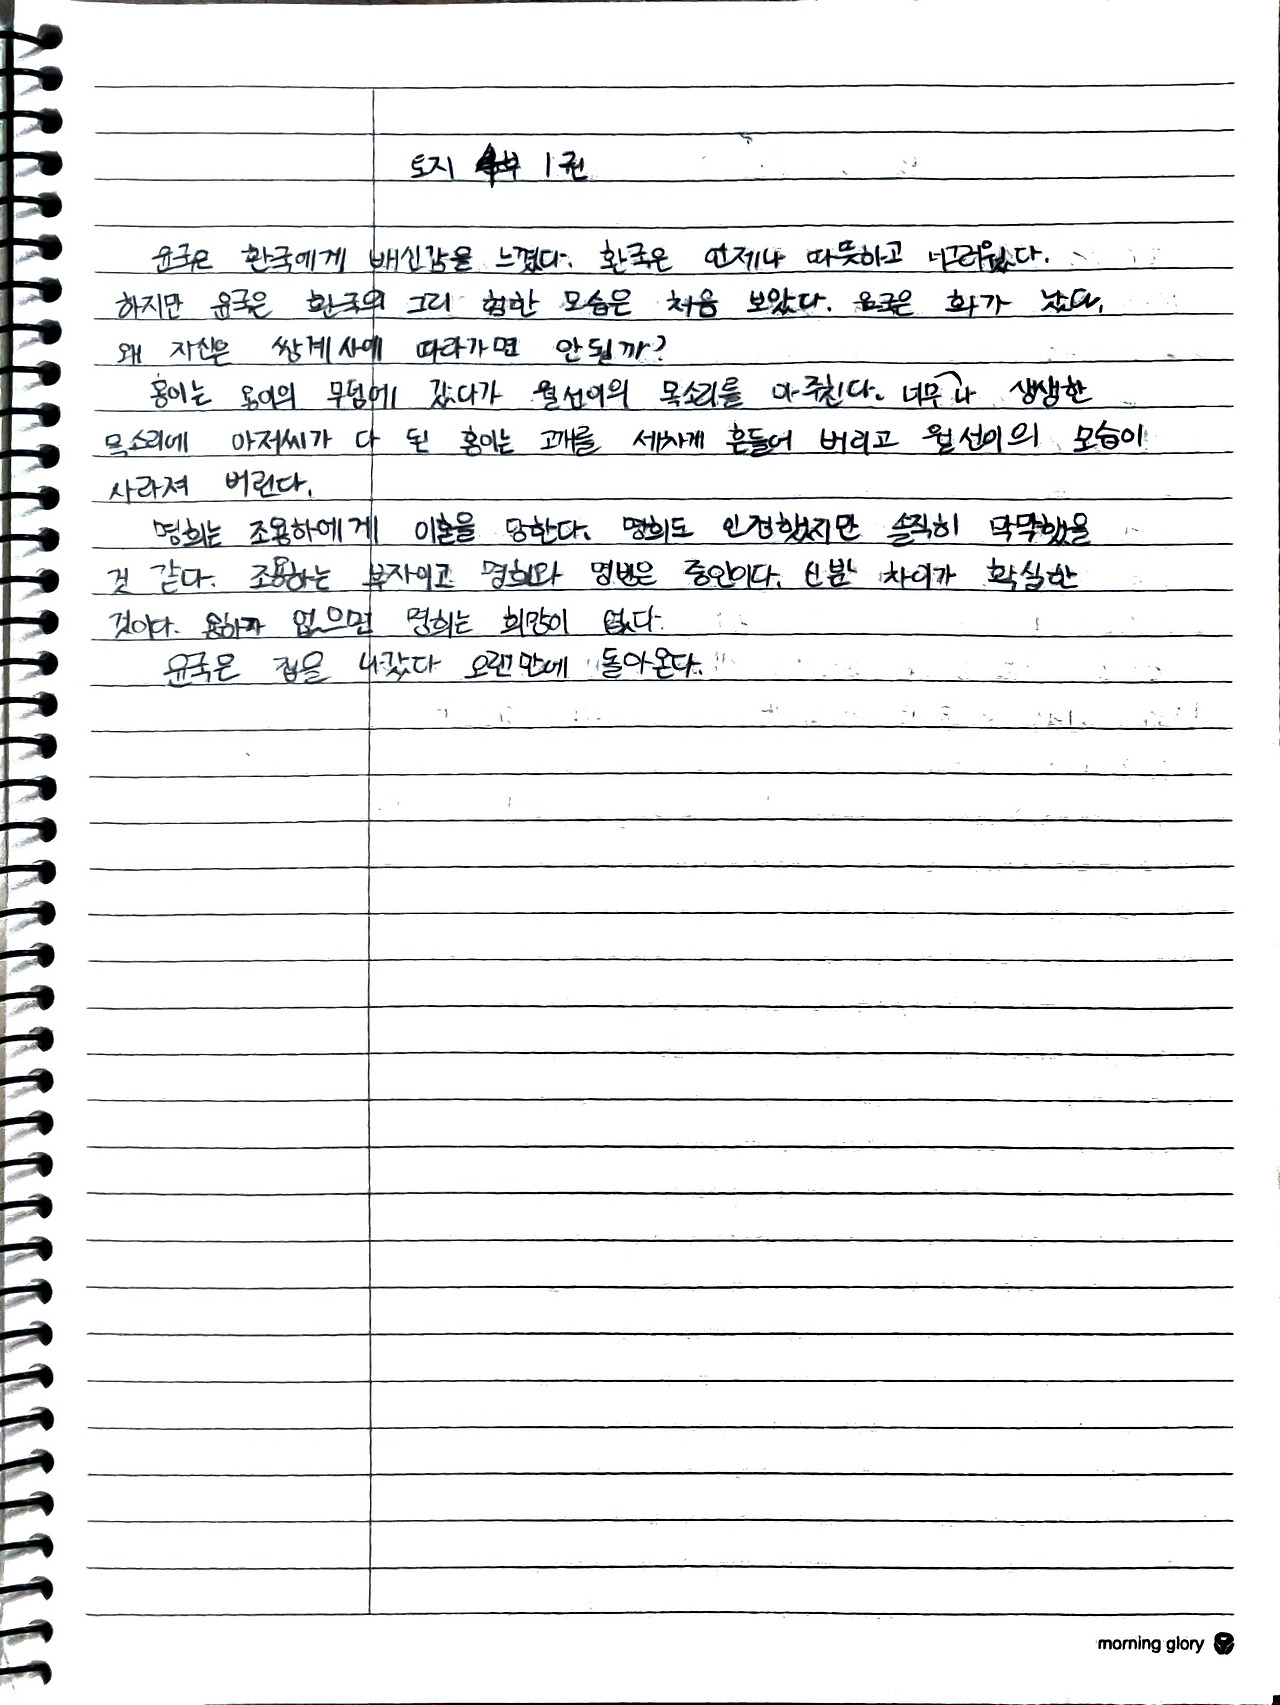 토지 4부 1권
윤국은 환국에게 배신감을 느꼈다. 환국은 언제나 따뜻하고 너그러웠다.
하지만 윤국은 환국의 그리 험한 모습은 처음 보았다. 윤국은 화가 났다.
왜 자신은 쌍계사에 따라가면 안될까?
홍이는 용이의 무덤에 갔다가 월선이의 목소리를 마주친다. 너무나 생생한
목소리에 아저씨가 다 된 홍이는 고개를 세차게 흔들어 버리고 월선이의 모습이
사라져 버린다.
명희는 조용하에게 이혼을 당한다. 명희도 인정했지만 솔직히 막막했을
것 같다. 조용하는 부자이고 명희와 명빈은 중인이다. 신분 차이가 확실한
것이다. 용하가 없으면 명희는 희망이 없다.
윤국은 집을 나갔다 오랜만에 돌아온다.
morning glory